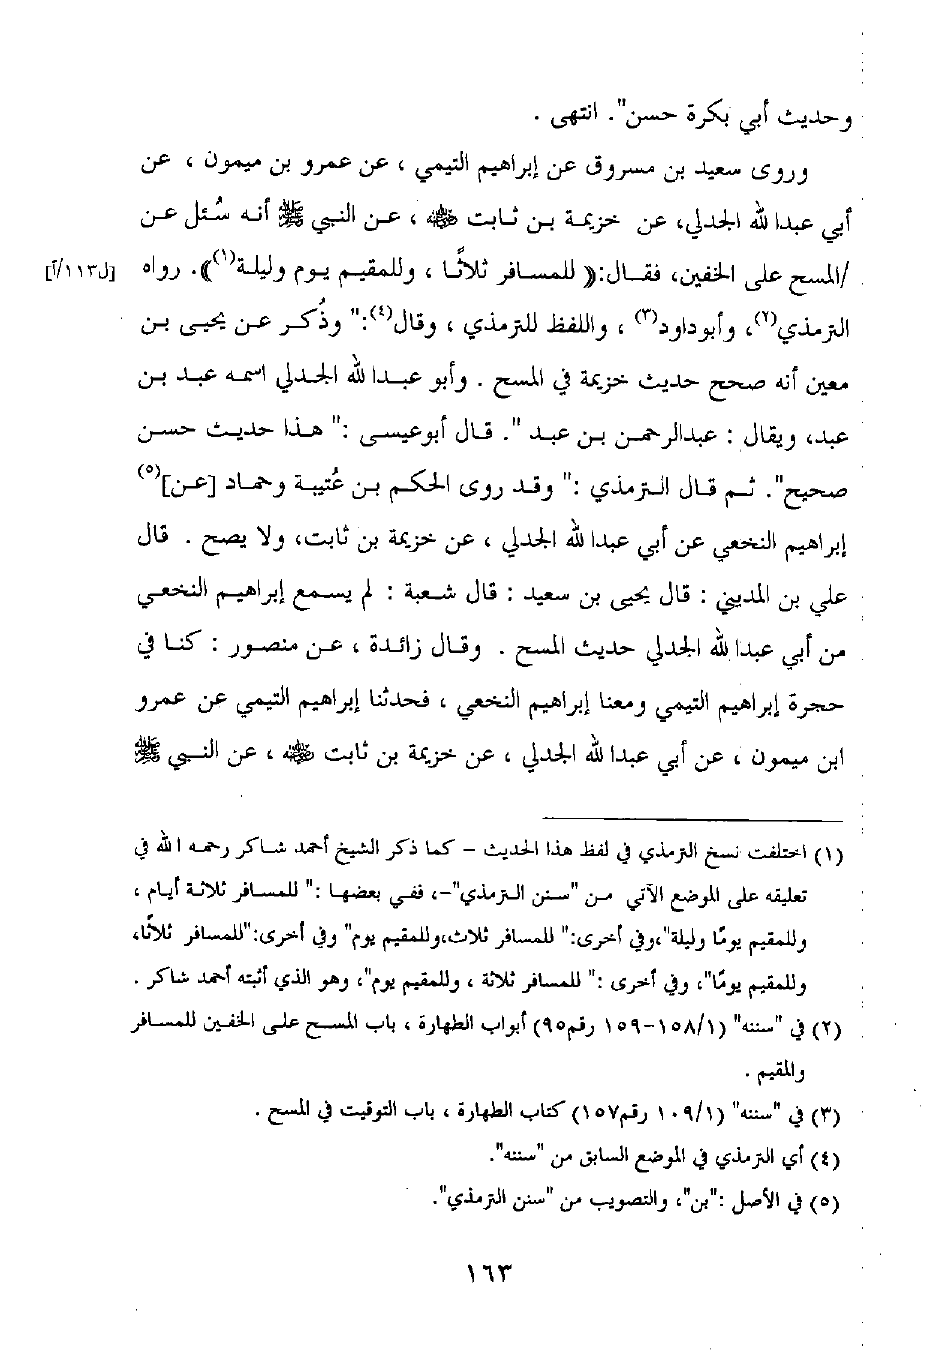 وحديث أبي بكرة حسن". انتهى .
وروى سعيد بن مسروق عن إبراهيم التيمي ، عن عمرو بن ميمون ، عن
أبي عبدا لله الجدلي، عن خزيمة بن ثابت ﷺ ، عن النبي ﷺ أنه سُئل عن
/المسح على الخفين، فقـال:(( للمسافر ثلاثًا ، وللمقيم يوم وليلة(١))). رواه [ل١١٣/أ]
الترمذي(٢)، وأبوداود(٣) ، واللفظ للترمذي ، وقال(٤):" وذُكر عن يحيى بن
معين أنه صحح حديث خزيمة في المسح . وأبو عبدا لله الجدلي اسمه عبد بن
عبد، ويقال : عبدالرحمن بن عبد ". قال أبوعيسى :" هذا حديث حسن
صحيح". ثم قال الترمذي :" وقد روى الحكم بن عُتيبة وحماد [عن](٥)
إبراهيم النخعي عن أبي عبدا لله الجدلي ، عن خزيمة بن ثابت، ولا يصح . قال
علي بن المديني : قال يحيى بن سعيد : قال شعبة : لم يسمع إبراهيم النخعي
من أبي عبدا لله الجدلي حديث المسح . وقال زائدة ، عن منصور : كنا في
حجرة إبراهيم التيمي ومعنا إبراهيم النخعي ، فحدثنا إبراهيم التيمي عن عمرو
ابن ميمون ، عن أبي عبدا لله الجدلي ، عن خزيمة بن ثابت ﷺ ، عن النبي ﷺ
(١) اختلفت نسخ الترمذي في لفظ هذا الحديث – كما ذكر الشيخ أحمد شاكر رحمه ا لله في
تعليقه على الموضع الآتي من "سنن الترمذي"–، ففي بعضها :" للمسافر ثلاثة أيام ،
وللمقيم يومًا وليلة"،وفي أخرى:" للمسافر ثلاث،وللمقيم يوم" وفي أخرى:"للمسافر ثلاثًا،
وللمقيم يومًا"، وفي أخرى :" للمسافر ثلاثة ، وللمقيم يوم"، وهو الذي أثبته أحمد شاكر .
(٢) في "سننه" (١/١٥٨-١٥٩ رقم٩٥) أبواب الطهارة ، باب المسح على الخفين للمسافر
والمقيم .
(٣) في "سننه" (١/١٠٩ رقم١٥٧) كتاب الطهارة ، باب التوقيت في المسح .
(٤) أي الترمذي في الموضع السابق من "سننه".
(٥) في الأصل :"بن"، والتصويب من "سنن الترمذي".
١٦٣